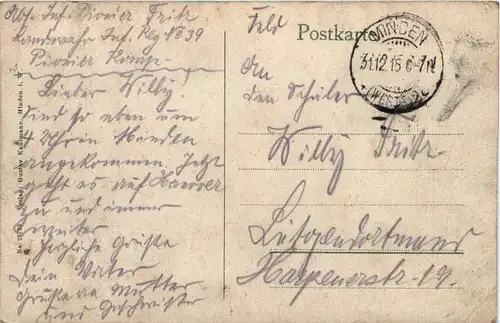 Abs. Inf. Pionier Fritz
Landwehr Inf. Reg No 39
Pionier Komp.
Lieber Willy.
Sind so eben um
4 Uhr in Minden
angekommen. Jetzt
geht es auf Hannover
zu und immer
weiter
Herzliche Grüße
Dein Vater
Grüße an Mutter
und Geschwister
Verlag: Gustav Kaufmann, Minden i. W.
Feld Postkarte
MINDEN
31.12.15 6-7N
(WESTF)
An
den Schüler
Willy Fritz
Lütgendortmund
Harpenerstr. 19.